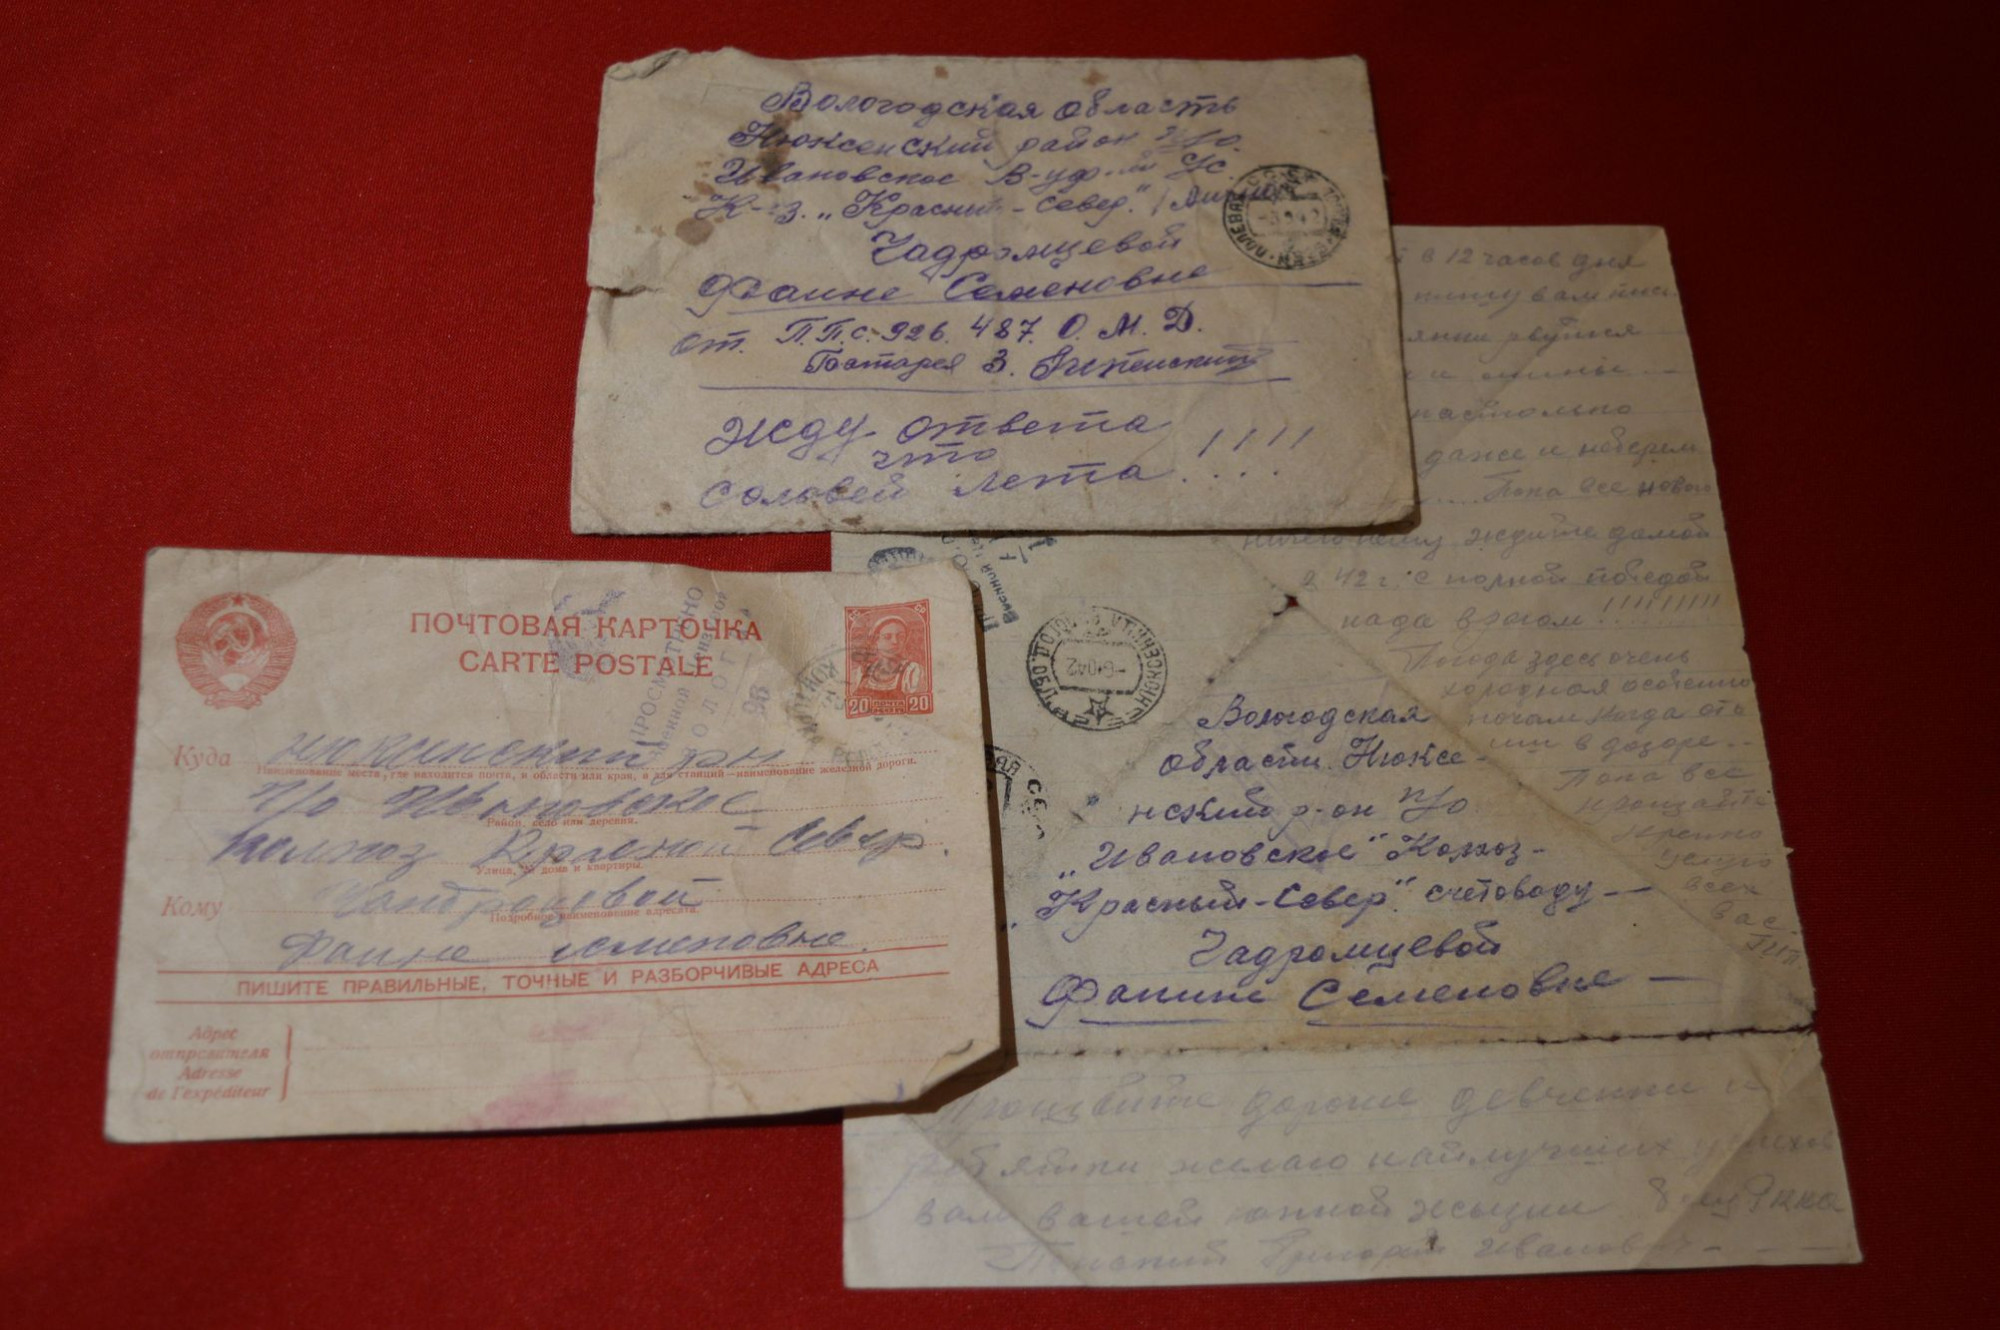 Вологодская область
Нюксенский район п/о.
Ивановское В-уф
К-з. „Красный-Север."
Чадромцевой
Фаине Семеновне
от. П.П.С. 926. 487. О. М. Д.
З.
Жду ответа
что
Соловей лета!!!!
ПОЧТОВАЯ КАРТОЧКА
CARTE POSTALE
ПРОСМОТРЕНО
Военной Цензурой
ВОЛОГДА
20 ПОЧТА 20
Куда Нюксенский р-н
Наименование места, где находится почта, и области или края, а для станций—наименование железной дороги.
п/о Ивановское
Район, село или деревня.
Колхоз Красной Север.
Улица, № дома и квартиры.
Кому
Подробное наименование адресата.
Фаине Семеновне.
ПИШИТЕ ПРАВИЛЬНЫЕ, ТОЧНЫЕ И РАЗБОРЧИВЫЕ АДРЕСА
Адрес
отправителя
Adresse
de l'expéditeur
Вологодская
области. Нюксе-
нский р-он п/о
„Ивановское" Колхоз-
„Красный-Север". счетоводу—
Чадромцевой
Фаине Семеновне—
в 12 часов дня
пишу вам
рвутся
и мины—
настолько
даже и неберем
Пока все новом
ничего нету ждите домой
в 42 г. с полной победой
нада врагом!!!!!!!!!
Погода здесь очень
холодная особенно
ночам когда
в дозоре..
Пока все
прощайте
крепко
целую
всех
вас
Процвейте дорогие девченки и
ребятки желаю найлучших успехов
вам вашей юнной жызни
Григорий Иванович